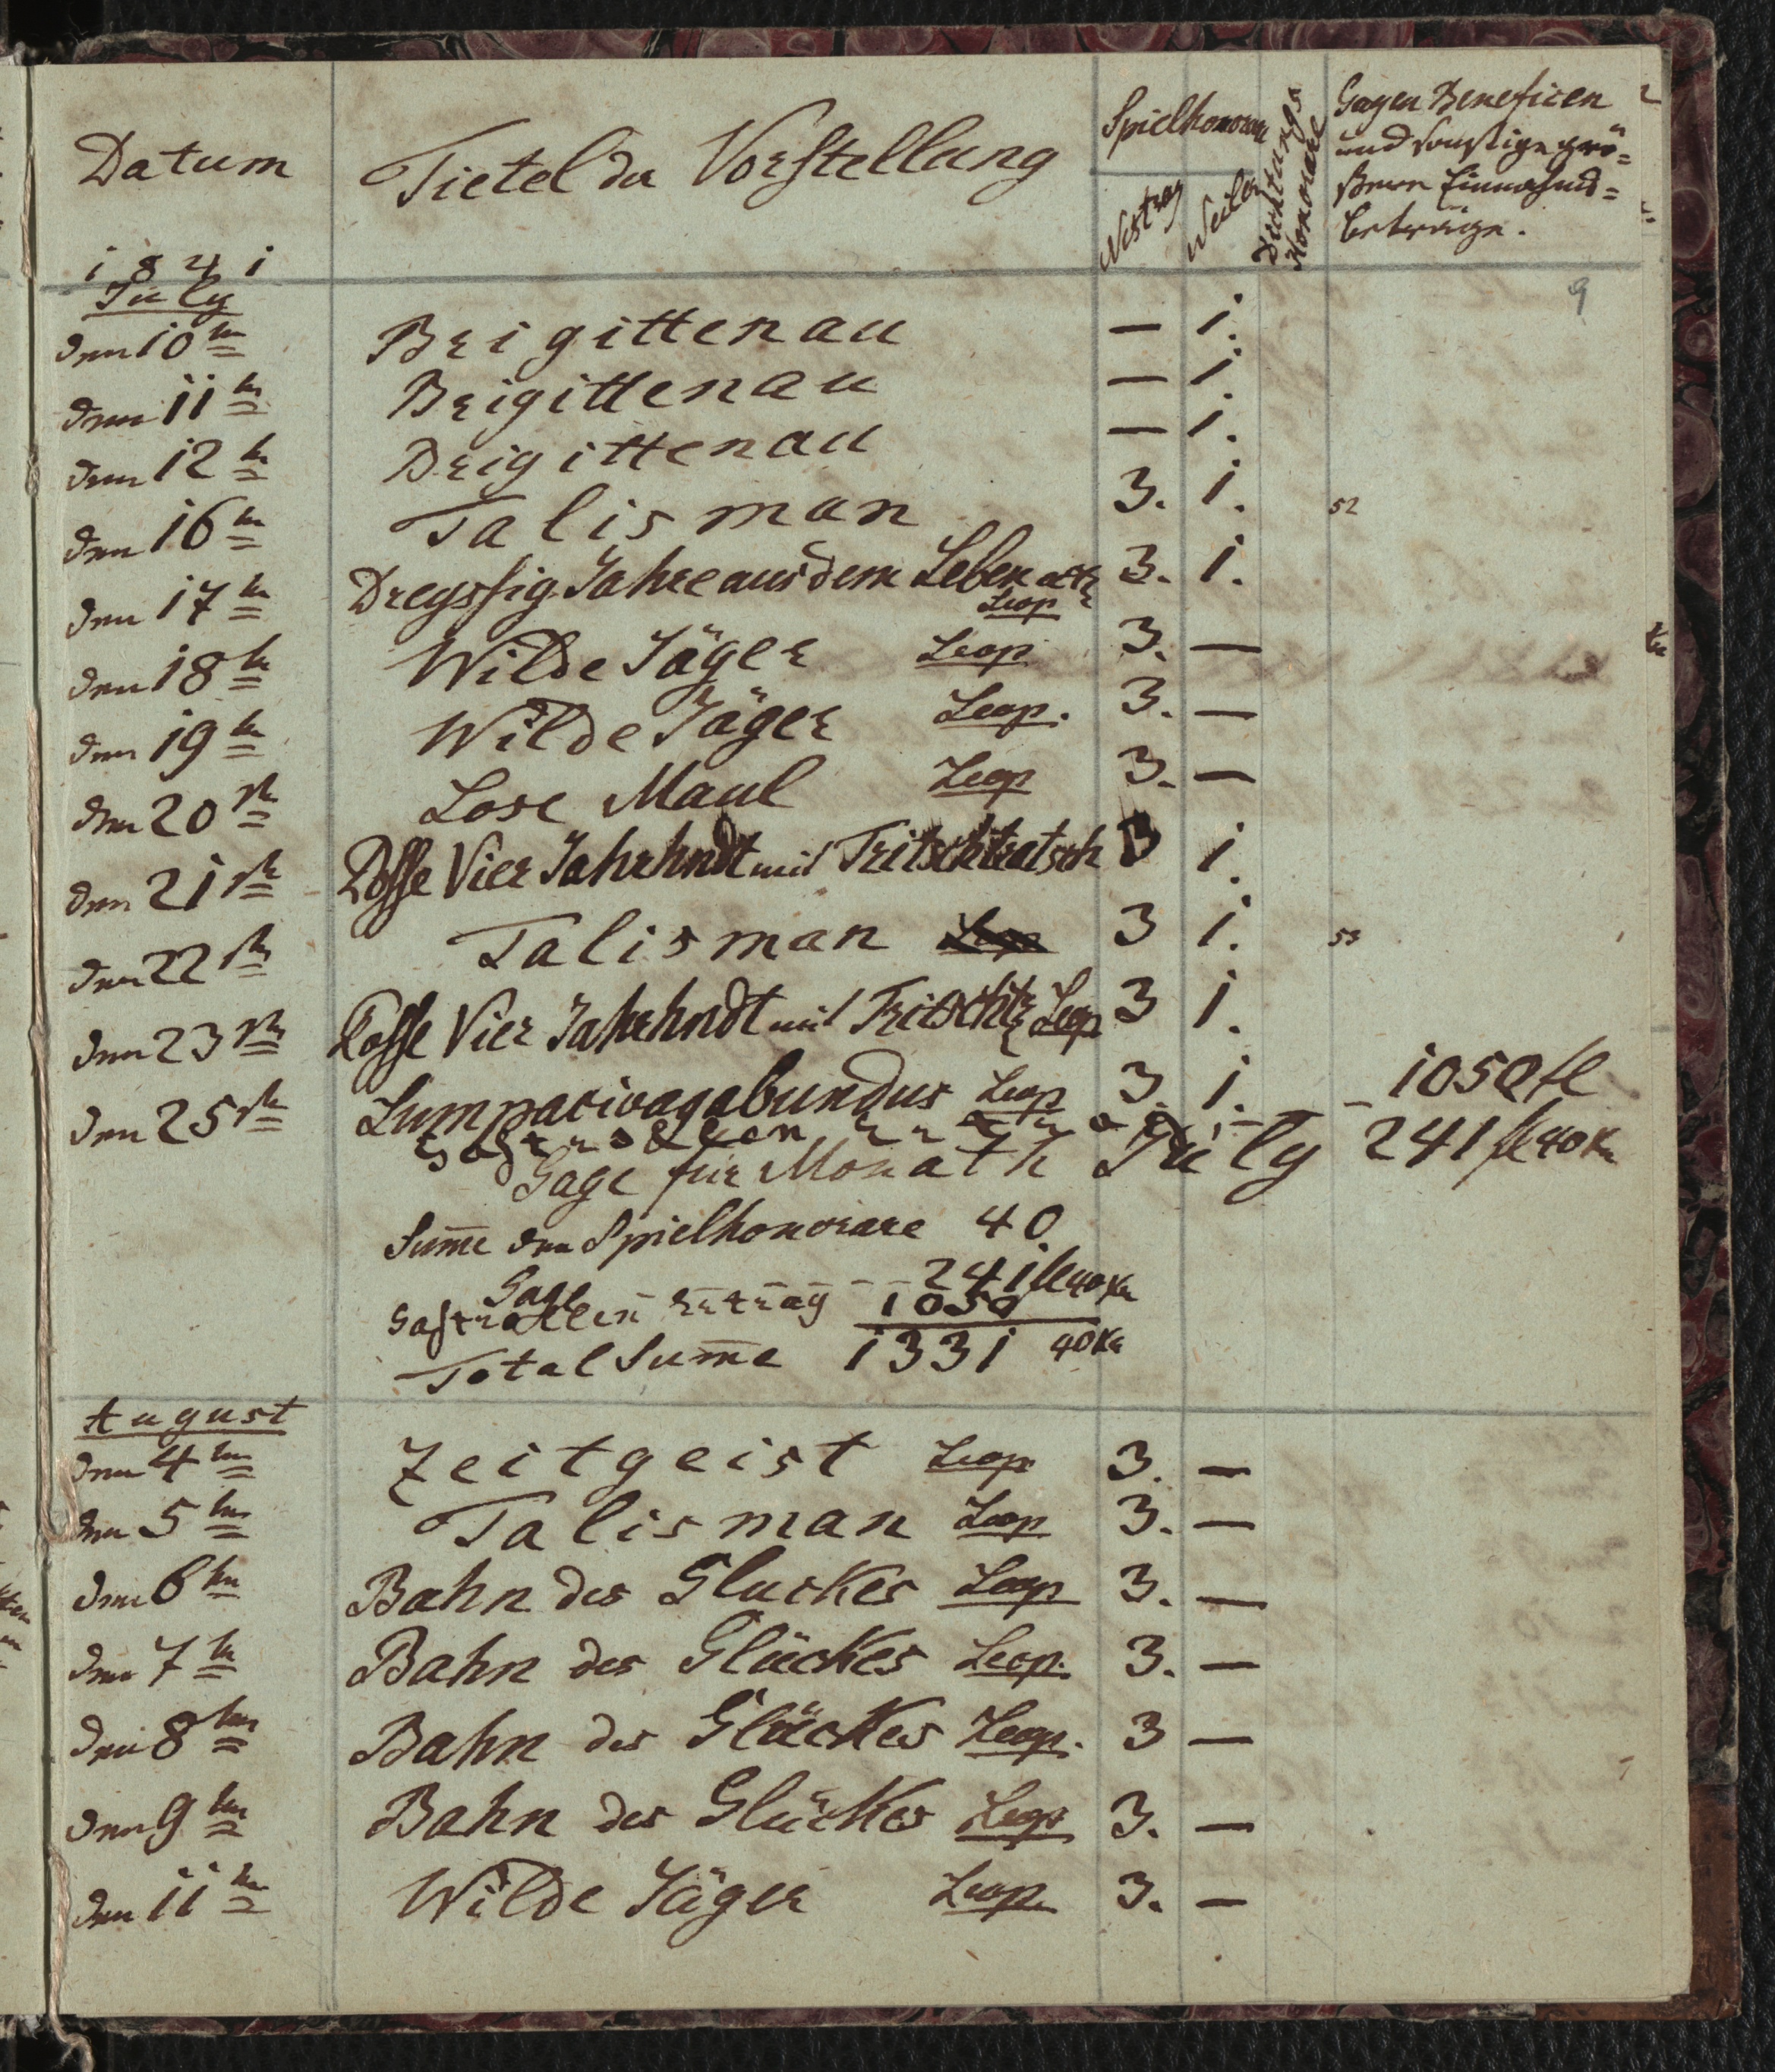 Datum Tietel der Vorstellung Spielhonorare Dichtungs Honorare Gagen Beneficen
Nestroy Weiler und sonstige grö=
ßere Einnahms=
beträge.
1841
July 9
den 10tn Brigittenau — 1.
den 11tn Brigittenau — 1.
den 12tn Brigittenau — 1.
den 16tn Talisman 3. 1. 52
den 17tn Dreyssig Jahre aus dem Leben etc Leop 3. 1.
den 18tn Wilde Jäger Leop 3. —
den 19tn Wilde Jäger Leop. 3. —
den 20stn Lose Maul Leop 3. —
den 21stn Posse Vier Jahrhndt mit Tritschtratsch 3 1.
den 22stn Talisman Leop 3 1. 53
den 23stn Posse Vier Jahrhndt mit Tritschtr Leop 3 1.
den 25stn Lumpacivagabundus Leop 3. 1.
1050 fl
Gage für Monath July 241 fl 40 Kr
Summe der Spielhonorare 40.
Gage 241 fl 40 Kr
Gastrollen Ertrag 1050
Total Summe 1331 40 Kr
August
den 4tn Zeitgeist Leop 3. —
den 5tn Talisman Leop 3. —
den 6tn Bahn des Gluckes Leop 3. —
den 7tn Bahn des Glückes Leop. 3. —
den 8tn Bahn des Glückes Leop. 3 —
den 9tn Bahn des Glückes Leop 3. —
den 11tn Wilde Jäger Leop. 3. —